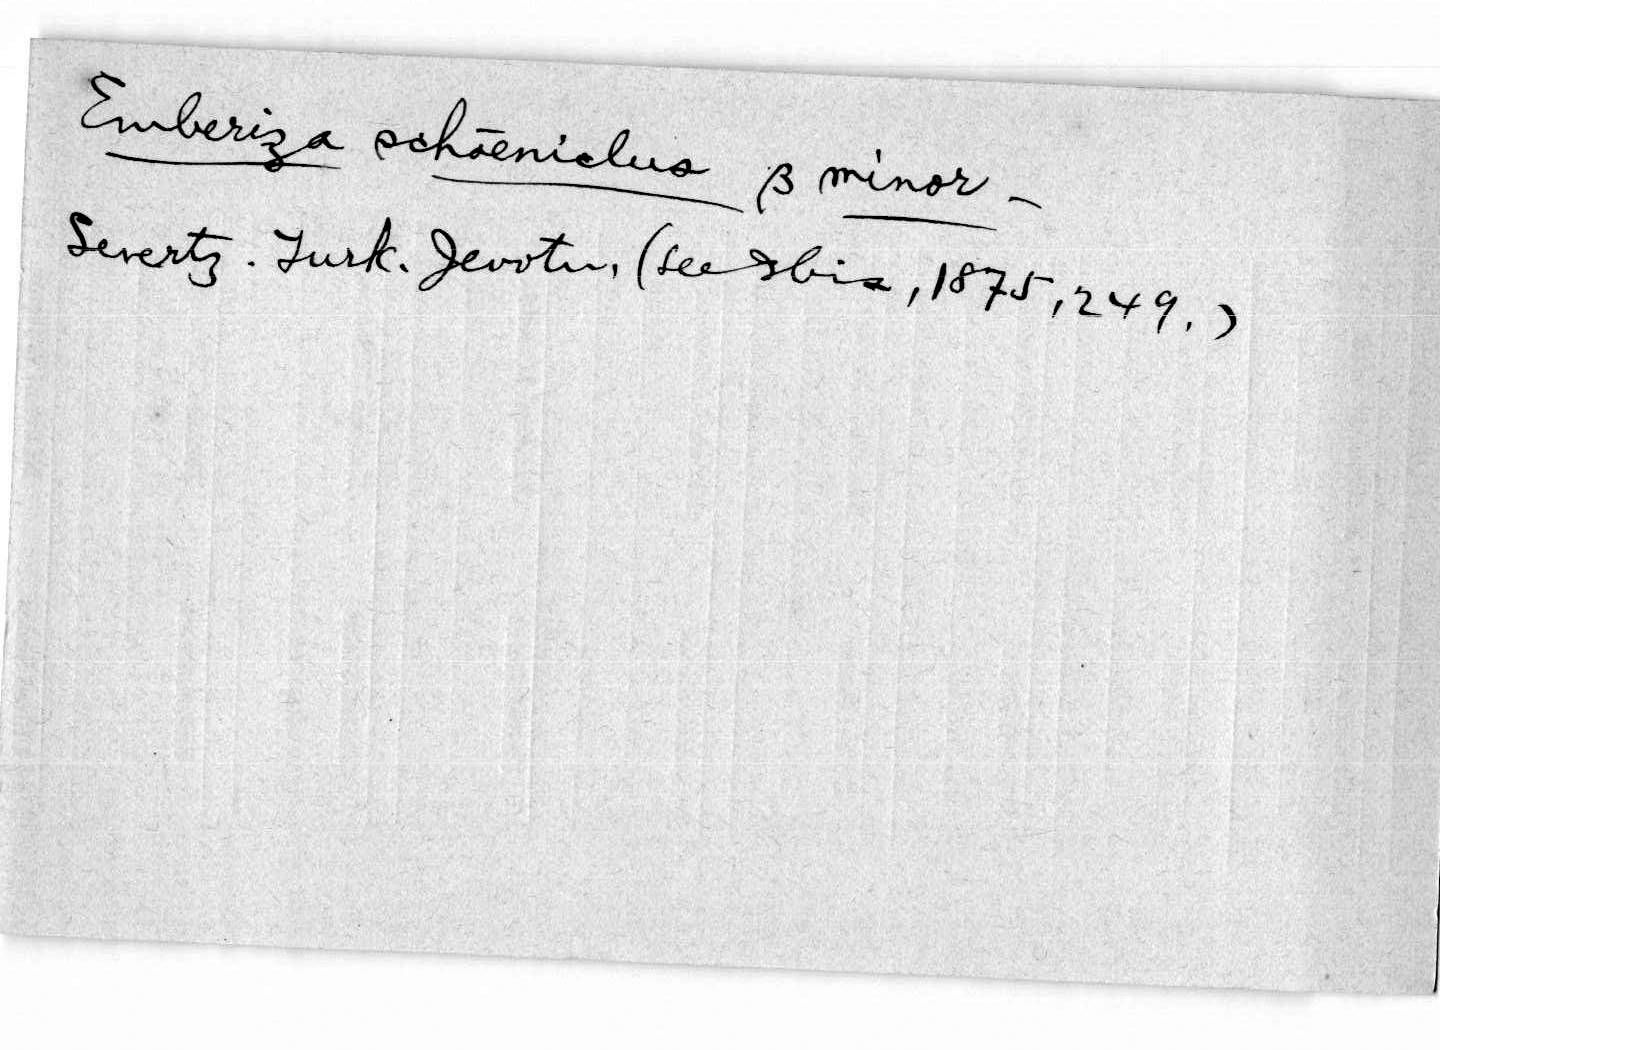 Emberiza schoeniclus β minor –
Severtz. Turk. Jevotn. (see Ibis, 1875, 249.)